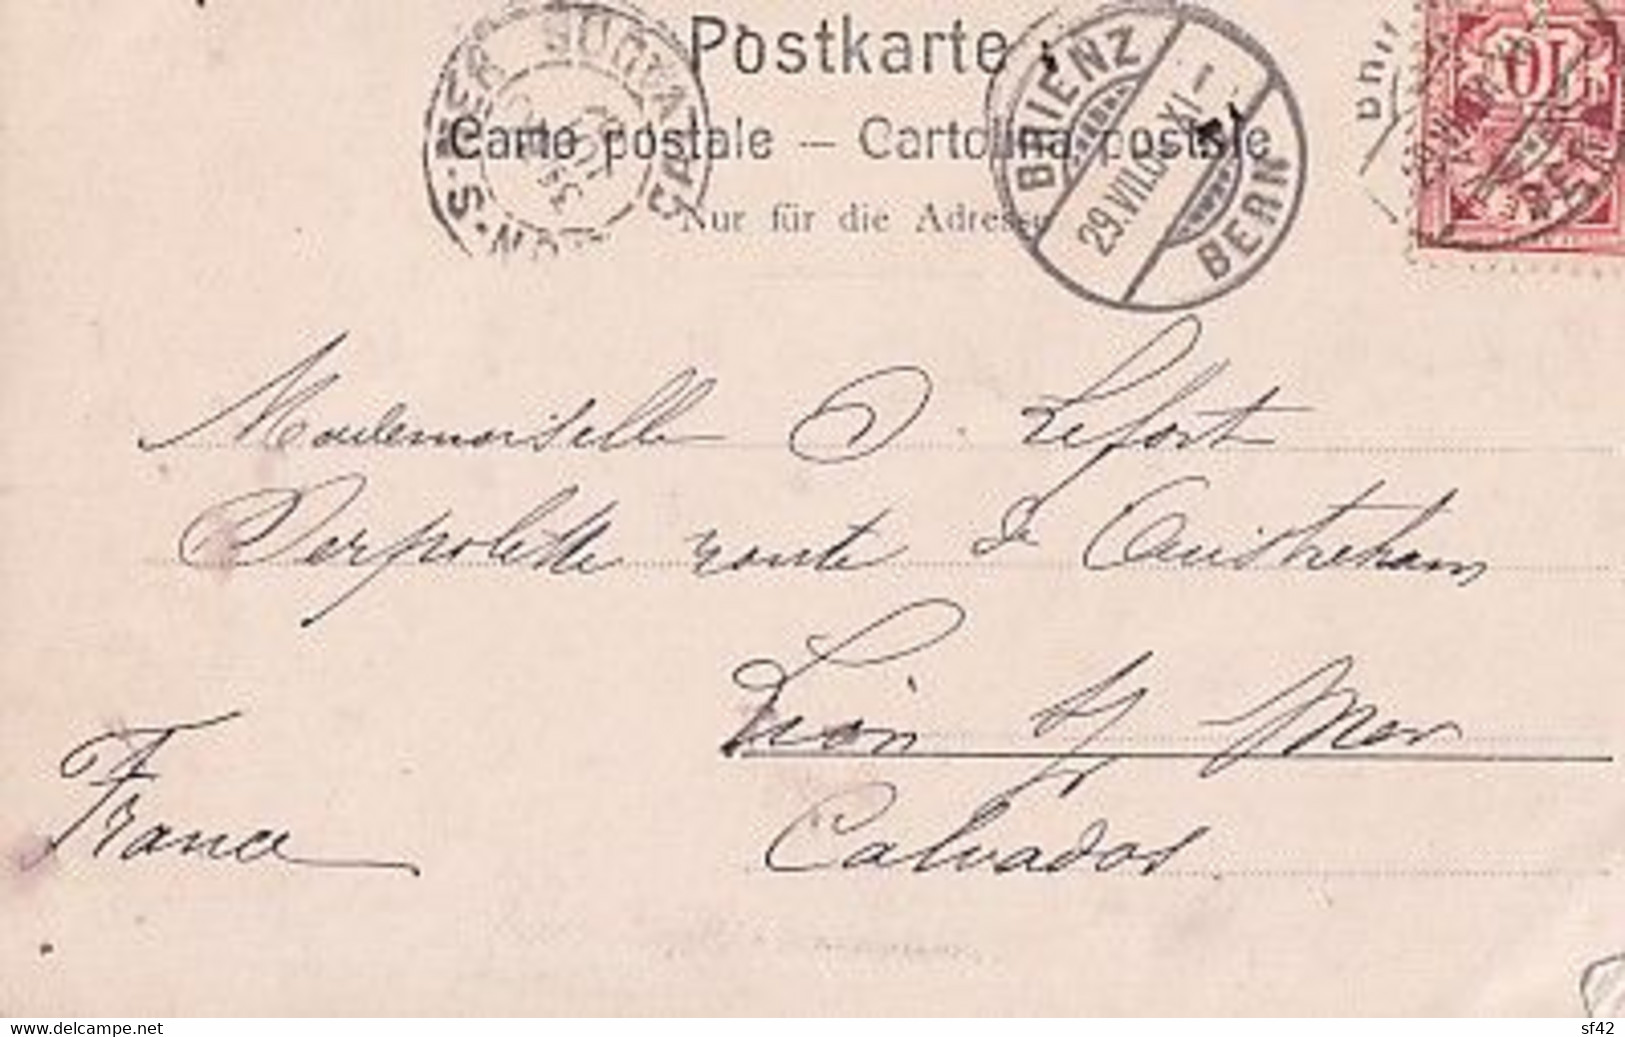 Postkarte
Carte postale — Cartolina postale
Nur für die Adresse
BRIENZ
29.VII.0 XI-
BERN
10
LION-S-MER CALVADOS
Mademoiselle D. Lefort
Perpolette route de Ouistreham
Lion s/ Mer
Calvados
France
www.delcampe.net
sf42